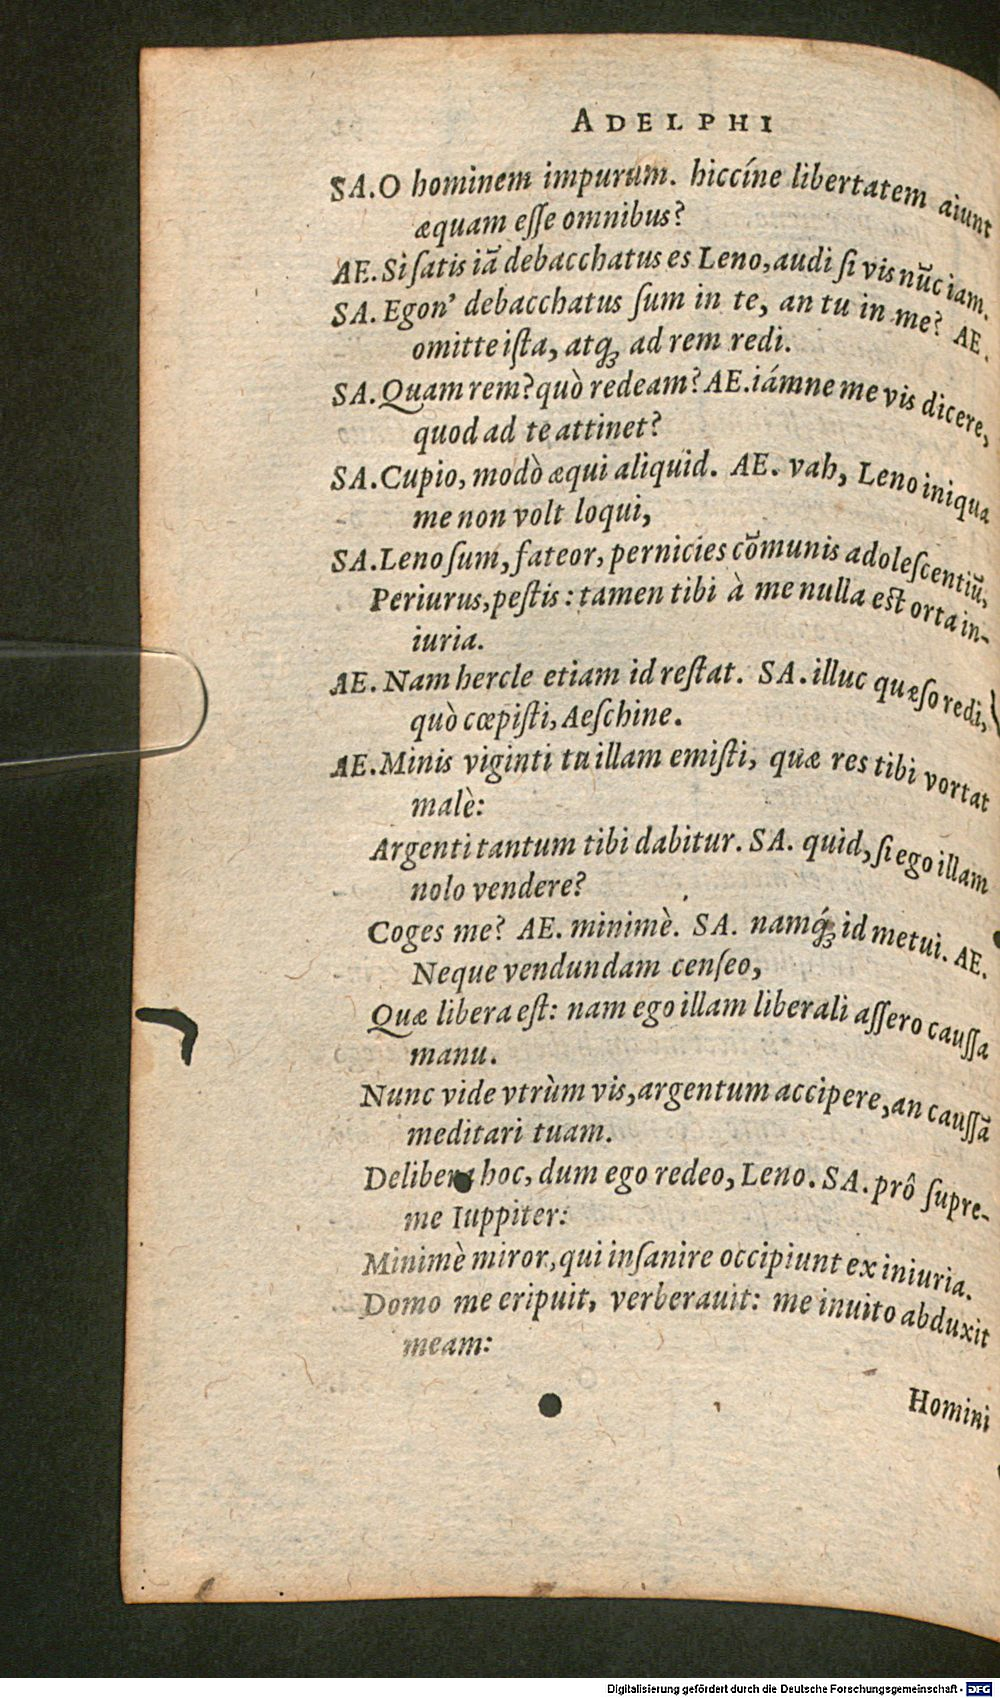 ADELPHI
SA. O hominem impurum. hiccíne libertatem aiunt
æquam eſſe omnibus?
AE. Si ſatis iā debacchatus es Leno, audi ſi vis nūc iam.
SA. Egon' debacchatus ſum in te, an tu in me? AE.
omitte iſta, atq; ad rem redi.
SA. Quam rem? quò redeam? AE. iámne me vis dicere,
quod ad te attinet?
SA. Cupio, modò æqui aliquid. AE. vah, Leno iniqua
me non volt loqui,
SA. Leno ſum, fateor, pernicies cōmunis adoleſcentiū,
Periurus, peſtis: tamen tibi à me nulla eſt orta in-
iuria.
AE. Nam hercle etiam id reſtat. SA. illuc quæſo redi,
quò cœpiſti, Aeſchine.
AE. Minis viginti tu illam emiſti, quæ res tibi vortat
malè:
Argenti tantum tibi dabitur. SA. quid, ſi ego illam
nolo vendere?
Coges me? AE. minimè. SA. namq́; id metui. AE.
Neque vendundam cenſeo,
Quæ libera eſt: nam ego illam liberali aſſero cauſſa
manu.
Nunc vide vtrùm vis, argentum accipere, an cauſſā
meditari tuam.
Delibera hoc, dum ego redeo, Leno. SA. prô ſupre-
me Iuppiter:
Minimè miror, qui inſanire occipiunt ex iniuria.
Domo me eripuit, verberauit: me inuito abduxit
meam:
Homini
Digitalisierung gefördert durch die Deutsche Forschungsgemeinschaft - DFG